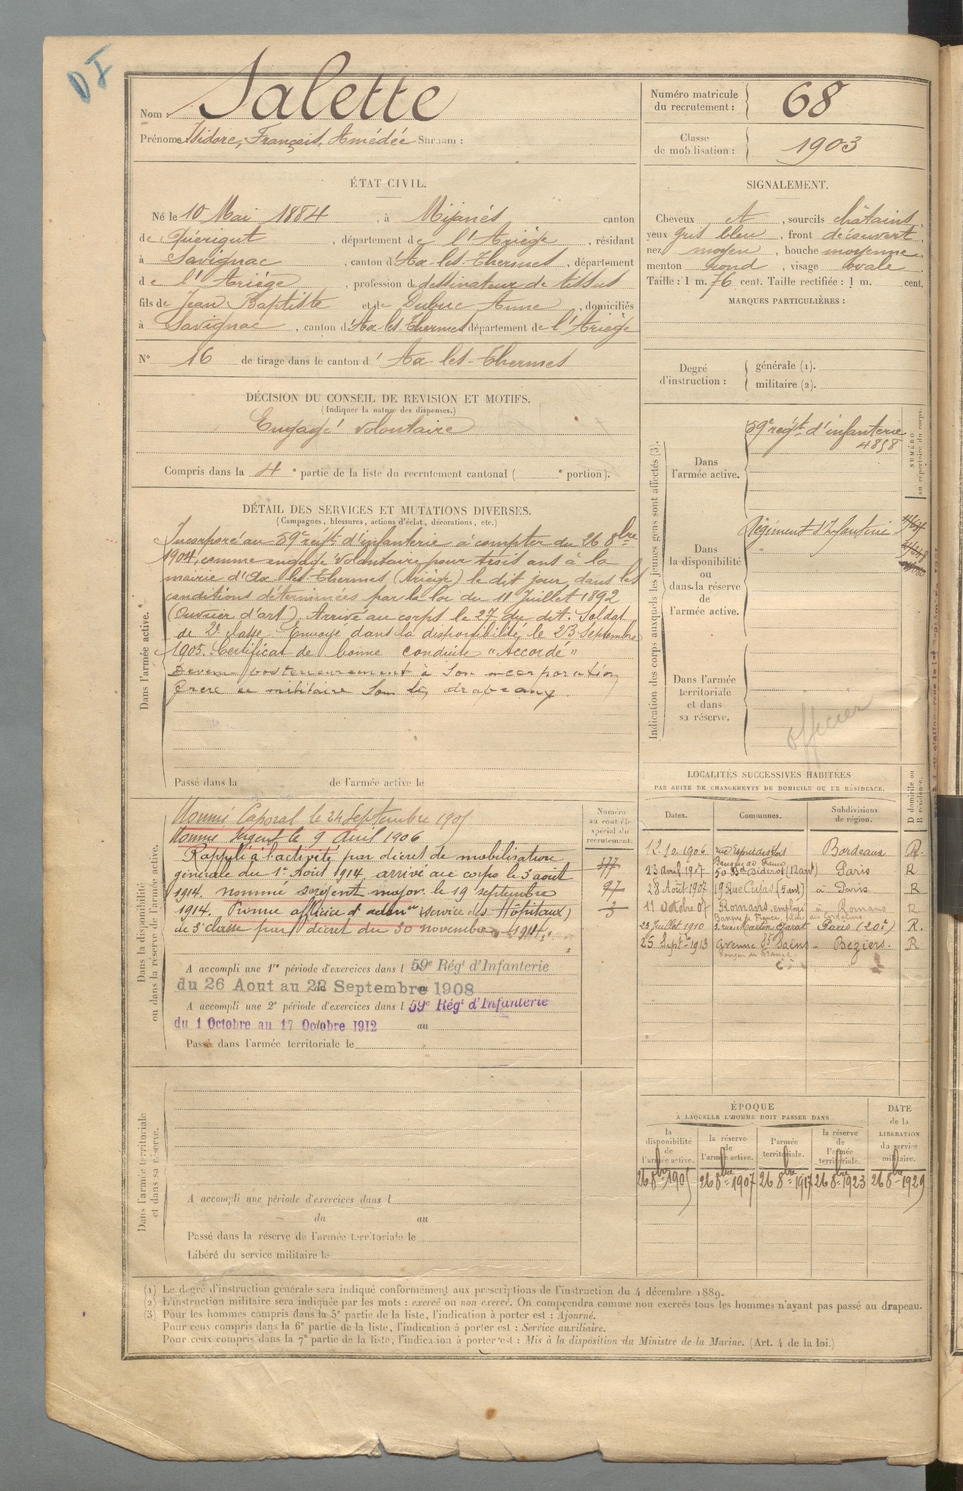 DI
Nom : Salette
Prénoms Isidore, François, Amédée Surnom :
Numéro matricule du recrutement : 68
Classe de mobilisation : 1903
ÉTAT CIVIL.
Né le 10 Mai 1884, à Mijanés canton
de Quérigut, département de l'Ariège, résidant
à Savignac, canton d'Ax les Thermes, département
de l'Ariège, profession de dessinateur de tissus
fils de Jean Baptiste et de Dubuc Anne, domiciliés
à Savignac, canton d'Ax les Thermes département de l'Ariège
N° 16 de tirage dans le canton d'Ax les Thermes
SIGNALEMENT.
Cheveux et, sourcils châtains
yeux gris bleu, front découvert,
nez moyen, bouche moyenne,
menton rond, visage ovale
Taille : 1 m. 76 cent. Taille rectifiée : 1 m. cent.
MARQUES PARTICULIÈRES :
Degré d'instruction : générale (1).
militaire (2).
DÉCISION DU CONSEIL DE REVISION ET MOTIFS.
(Indiquer la nature des dispenses.)
Engagé volontaire
Compris dans la 4e partie de la liste du recrutement cantonal ( e portion).
DÉTAIL DES SERVICES ET MUTATIONS DIVERSES.
(Campagnes, blessures, actions d'éclat, décorations, etc.)
Dans l'armée active.
Incorporé au 59e régt d'infanterie à compter du 26 8bre
1904, comme engagé volontaire pour trois ans à la
mairie d'Ax les Thermes (Ariège) le dit jour, dans les
conditions déterminées par la loi du 11 Juillet 1892
(Ouvrier d'art). Arrivé au corps le 27 du dit. Soldat
de 2e classe. Envoyé dans la disponibilité, le 23 Septembre
1905. Certificat de bonne conduite "Accordé"
Devenu postérieurement à son incorporation
frère de militaire sous les drapeaux.
Passé dans la de l'armée active le
Indication des corps auxquels les jeunes gens sont affectés (3).
Dans l'armée active.
59e régt d'infanterie
4858
Dans la disponibilité ou dans la réserve de l'armée active.
Régiment d'Infanterie
Dans l'armée territoriale et dans sa réserve.
officier
Dans la disponibilité ou dans la réserve de l'armée active.
Nommé Caporal le 24 Septembre 1905
Nommé Sergent le 9 Avril 1906
Rappelé à l'activité par décret de mobilisation
générale du 1er Août 1914, arrivé au corps le 3 août
1914. nommé sergent major le 19 septembre
1914. Promu officier d'admon (service des Hôpitaux)
de 3e classe par décret du 30 novembre 1914.
A accompli une 1re période d'exercices dans l 59e Régt d'Infanterie
du 26 Aout au 22 Septembre 1908
A accompli une 2e période d'exercices dans l 59e Régt d'Infanterie
du 1 Octobre au 17 Octobre 1912 au
Passé dans l'armée territoriale le
LOCALITÉS SUCCESSIVES HABITÉES
PAR SUITE DE CHANGEMENTS DE DOMICILE OU DE RÉSIDENCE.
Dates. Communes. Subdivisions de région. D domicile ou R résidence.
12 10 1906 Bordeaux R
23 avril 1907 50 Bd Diderot Paris R
28 Août 1907 19 Rue Cujas à Paris R
11 Octobre 07 Romans, employé à Romans R
29 Juillet 1910 Paris (20e) R.
25 Sept 1913 Avenue St Saëns Béziers. R
Dans l'armée territoriale et dans sa réserve.
A accompli une période d'exercices dans l
du au
Passé dans la réserve de l'armée territoriale le
Libéré du service militaire le
ÉPOQUE
À LAQUELLE L'HOMME DOIT PASSER DANS
la disponibilité de l'armée active. la réserve de l'armée active. l'armée territoriale. la réserve de l'armée territoriale. DATE de la LIBÉRATION du service militaire.
26 8bre 1905 26 8bre 1907 26 8bre 1917 26 8bre 1923 26 8bre 1929
(1) Le degré d'instruction générale sera indiqué conformément aux prescriptions de l'instruction du 4 décembre 1889.
(2) L'instruction militaire sera indiquée par les mots : exercé ou non exercé. On comprendra comme non exercés tous les hommes n'ayant pas passé au drapeau.
(3) Pour les hommes compris dans la 5e partie de la liste, l'indication à porter est : Ajourné.
Pour ceux compris dans la 6e partie de la liste, l'indication à porter est : Service auxiliaire.
Pour ceux compris dans la 7e partie de la liste, l'indication à porter est : Mis à la disposition du Ministre de la Marine. (Art. 4 de la loi.)